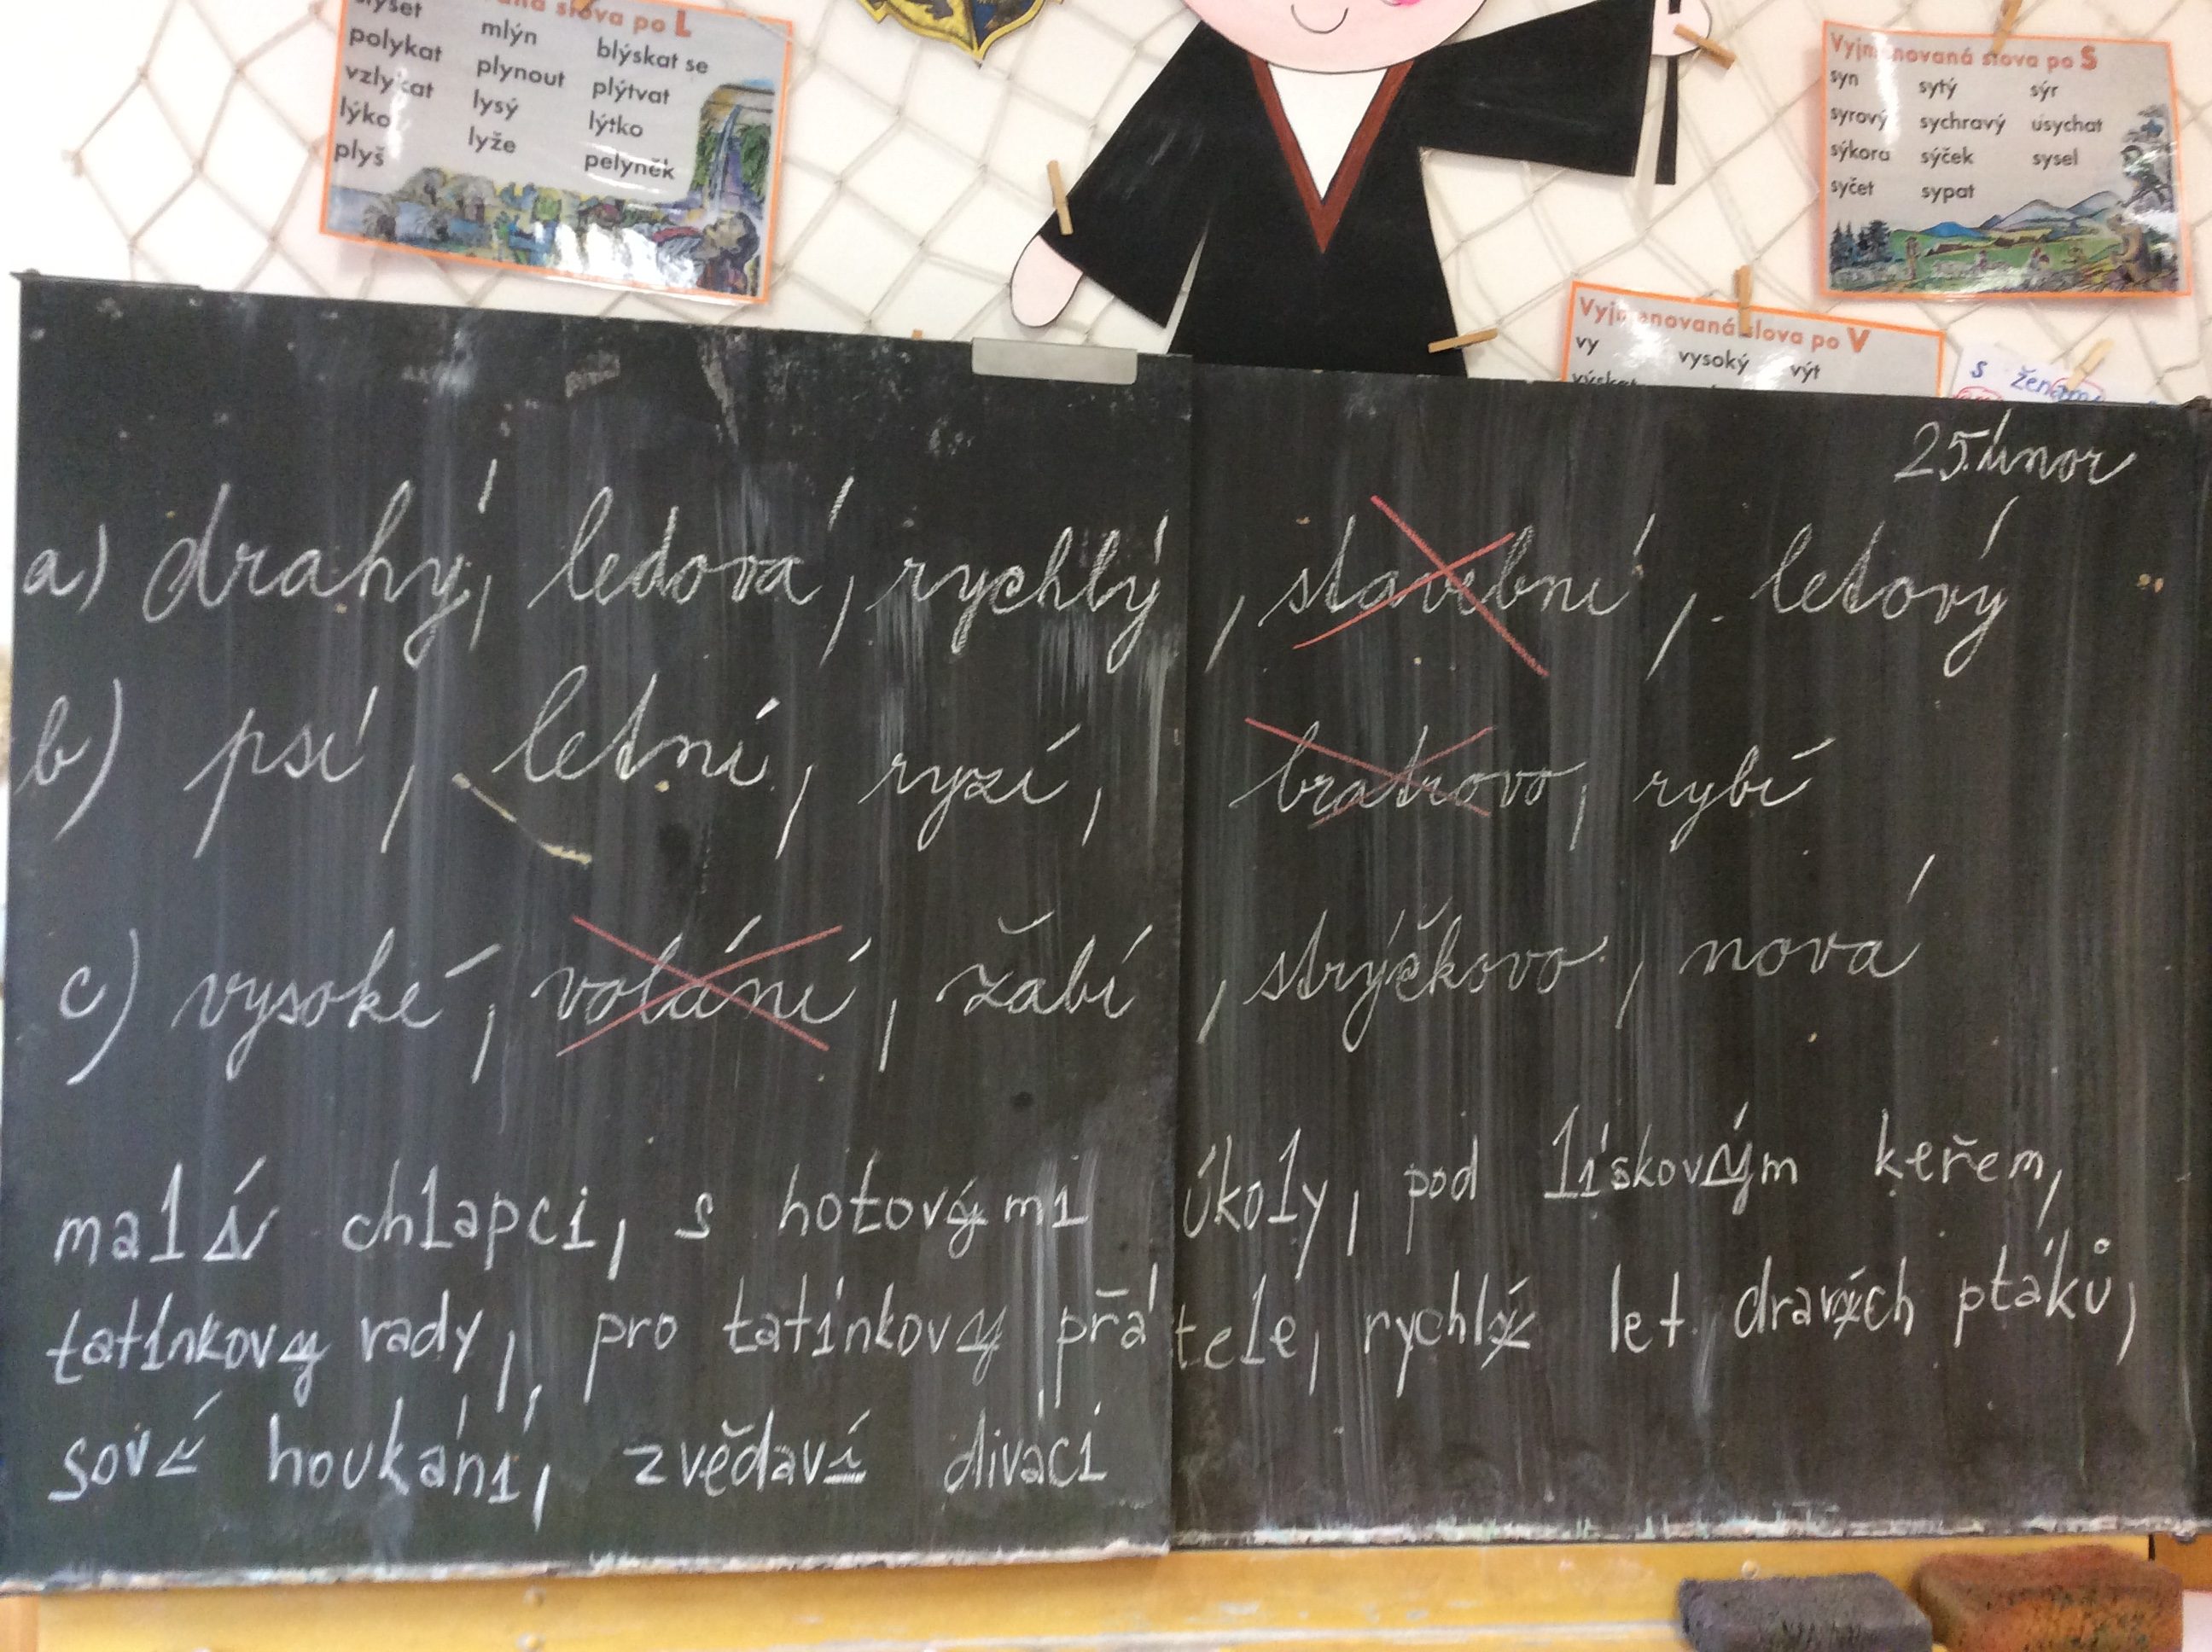 slova po L
mlýn blýskat se
polykat plynout plýtvat
vzlykat lysý lýtko
lýko lyže pelyněk
plyš
Vyjmenovaná slova po S
syn sytý sýr
syrový sychravý usychat
sýkora sýček sysel
syčet sypat
Vyjmenovaná slova po V
vy vysoký výt
s ženami
25. únor
a) drahý, ledová, rychlý, stavební, letový
b) psí, letní, ryzí, bratrovo, rybí
c) vysoké, volání, žabí, strýčkovo, nová
malí chlapci, s hotovými úkoly, pod lískovým keřem,
tatínkovy rady, pro tatínkovy přátele, rychlý let dravých ptáků,
soví houkání, zvědaví diváci